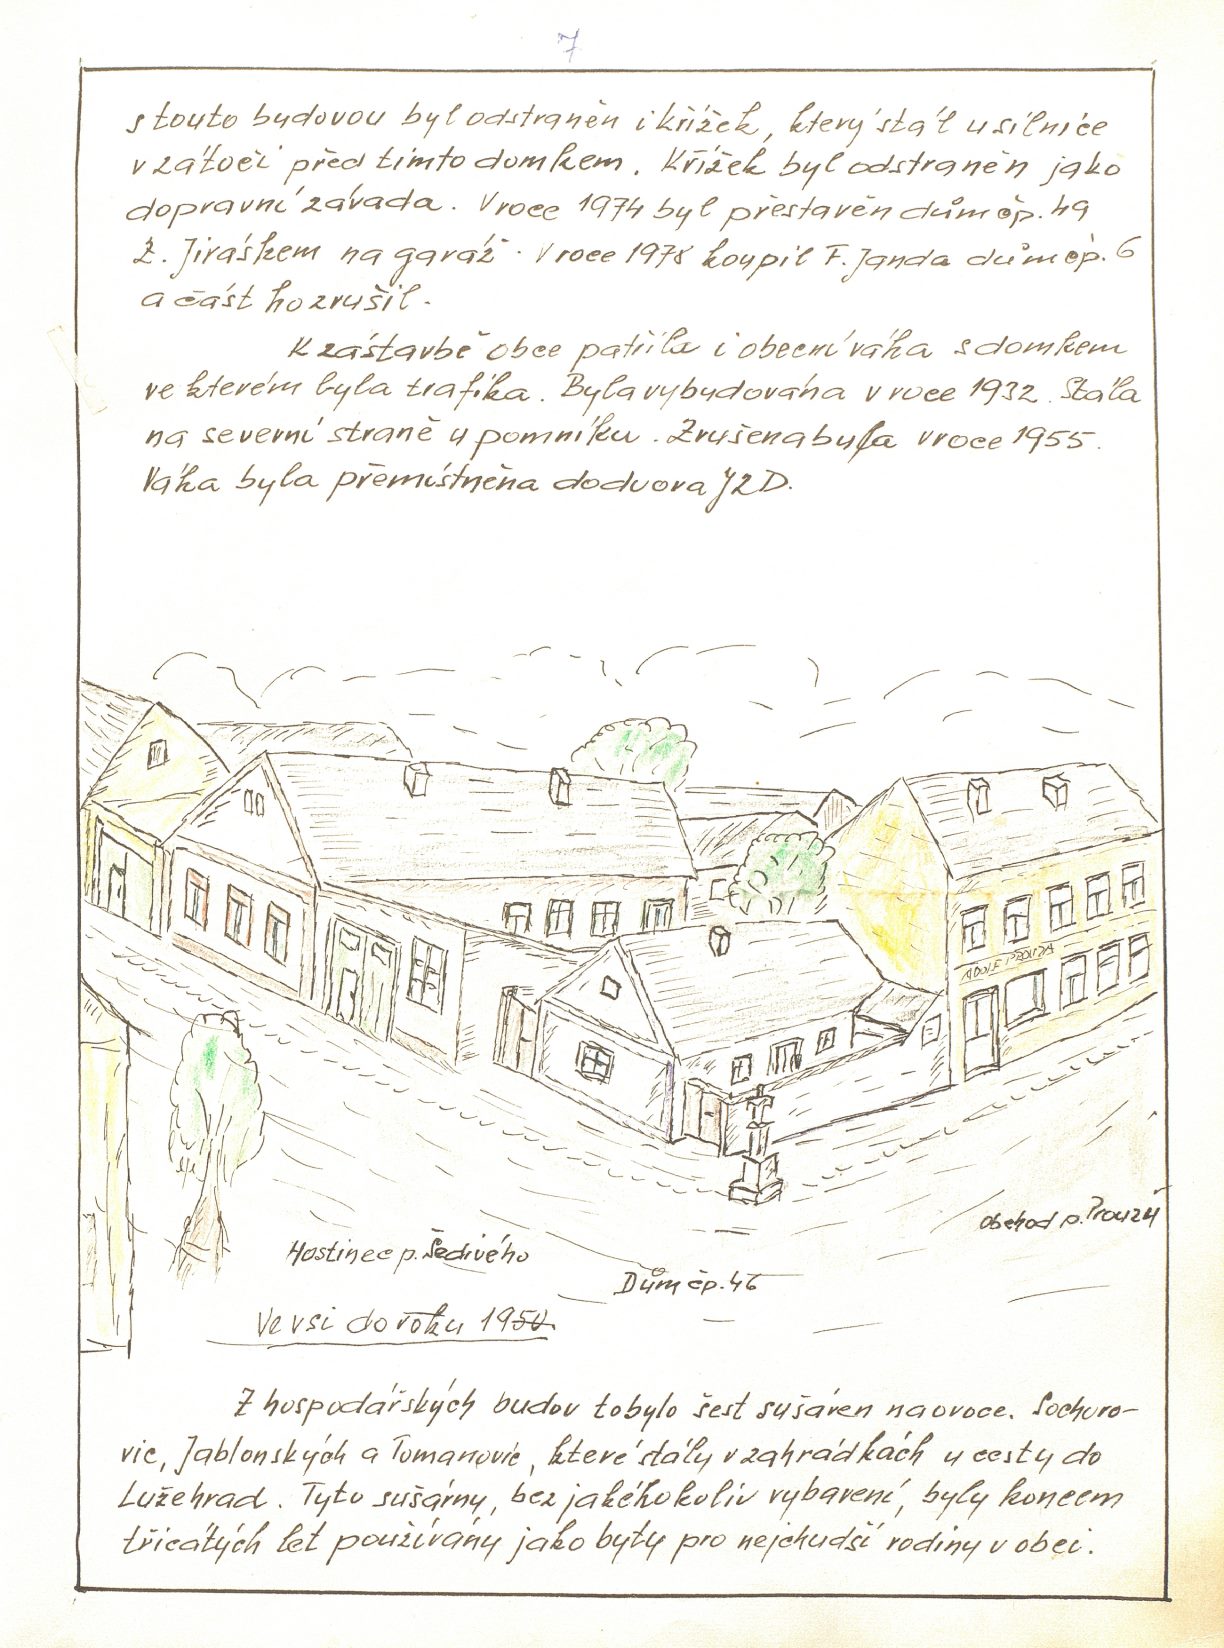 7
s touto budovou byl odstraněn i křížek, který stál u silnice
v zátočí před tímto domkem. Křížek byl odstraněn jako
dopravní závada. V roce 1974 byl přestavěn dům čp. 49
Z. Jiráskem na garáž. V roce 1978 koupil F. Janda dům čp. 6
a část ho zrušil.
K zástavbě obce patřila i obecní váha s domkem
ve kterém byla trafika. Byla vybudována v roce 1932. Stála
na severní straně u pomníku. Zrušena byla v roce 1955.
Váha byla přemístněna do dvora JZD.
ADOLF PROUZA
Obchod p. Prouzy
Hostinec p. Šedivého
Dům čp. 46
Ve vsi do roku 1950.
Z hospodářských budov to bylo šest sušáren na ovoce. Sochoro-
vic, Jablonských a Tomanovic, které stály v zahrádkách u cesty do
Lužehrad. Tyto sušárny, bez jakéhokoliv vybavení, byly koncem
třicátých let používány jako byty pro nejchudší rodiny v obci.